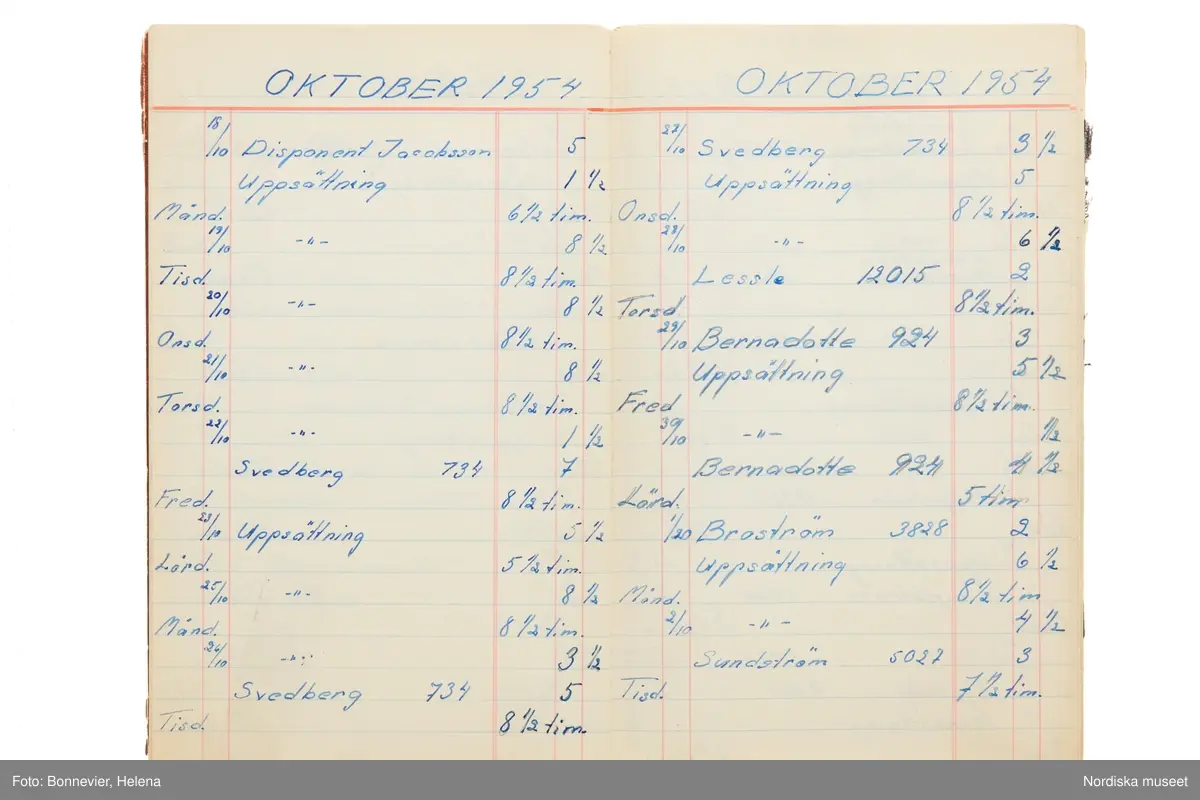 OKTOBER 1954
18/10 Disponent Jacobsson 5
Uppsättning 1 1/2
Månd. 6 1/2 tim.
19/10 -"- 8 1/2
Tisd. 8 1/2 tim.
20/10 -"- 8 1/2
Onsd. 8 1/2 tim.
21/10 -"- 8 1/2
Torsd. 8 1/2 tim.
22/10 -"- 1 1/2
Svedberg 734 7
Fred. 8 1/2 tim.
23/10 Uppsättning 5 1/2
Lörd. 5 1/2 tim.
25/10 -"- 8 1/2
Månd. 8 1/2 tim.
26/10 -"- 3 1/2
Svedberg 734 5
Tisd. 8 1/2 tim.
OKTOBER 1954
27/10 Svedberg 734 3 1/2
Uppsättning 5
Onsd. 8 1/2 tim.
28/10 -"- 6 1/2
Lessle 12015 2
Torsd 8 1/2 tim.
29/10 Bernadotte 924 3
Uppsättning 5 1/2
Fred 8 1/2 tim.
30/10 -"- 1/2
Bernadotte 924 4 1/2
Lörd. 5 tim
1/20 Broström 3828 2
Uppsättning 6 1/2
Månd. 8 1/2 tim
2/10 -"- 4 1/2
Sundström 5027 3
Tisd. 7 1/2 tim.
Foto: Bonnevier, Helena
Nordiska museet